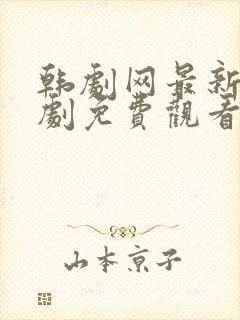 韩劇网最新
劇免費觀看
山本京子